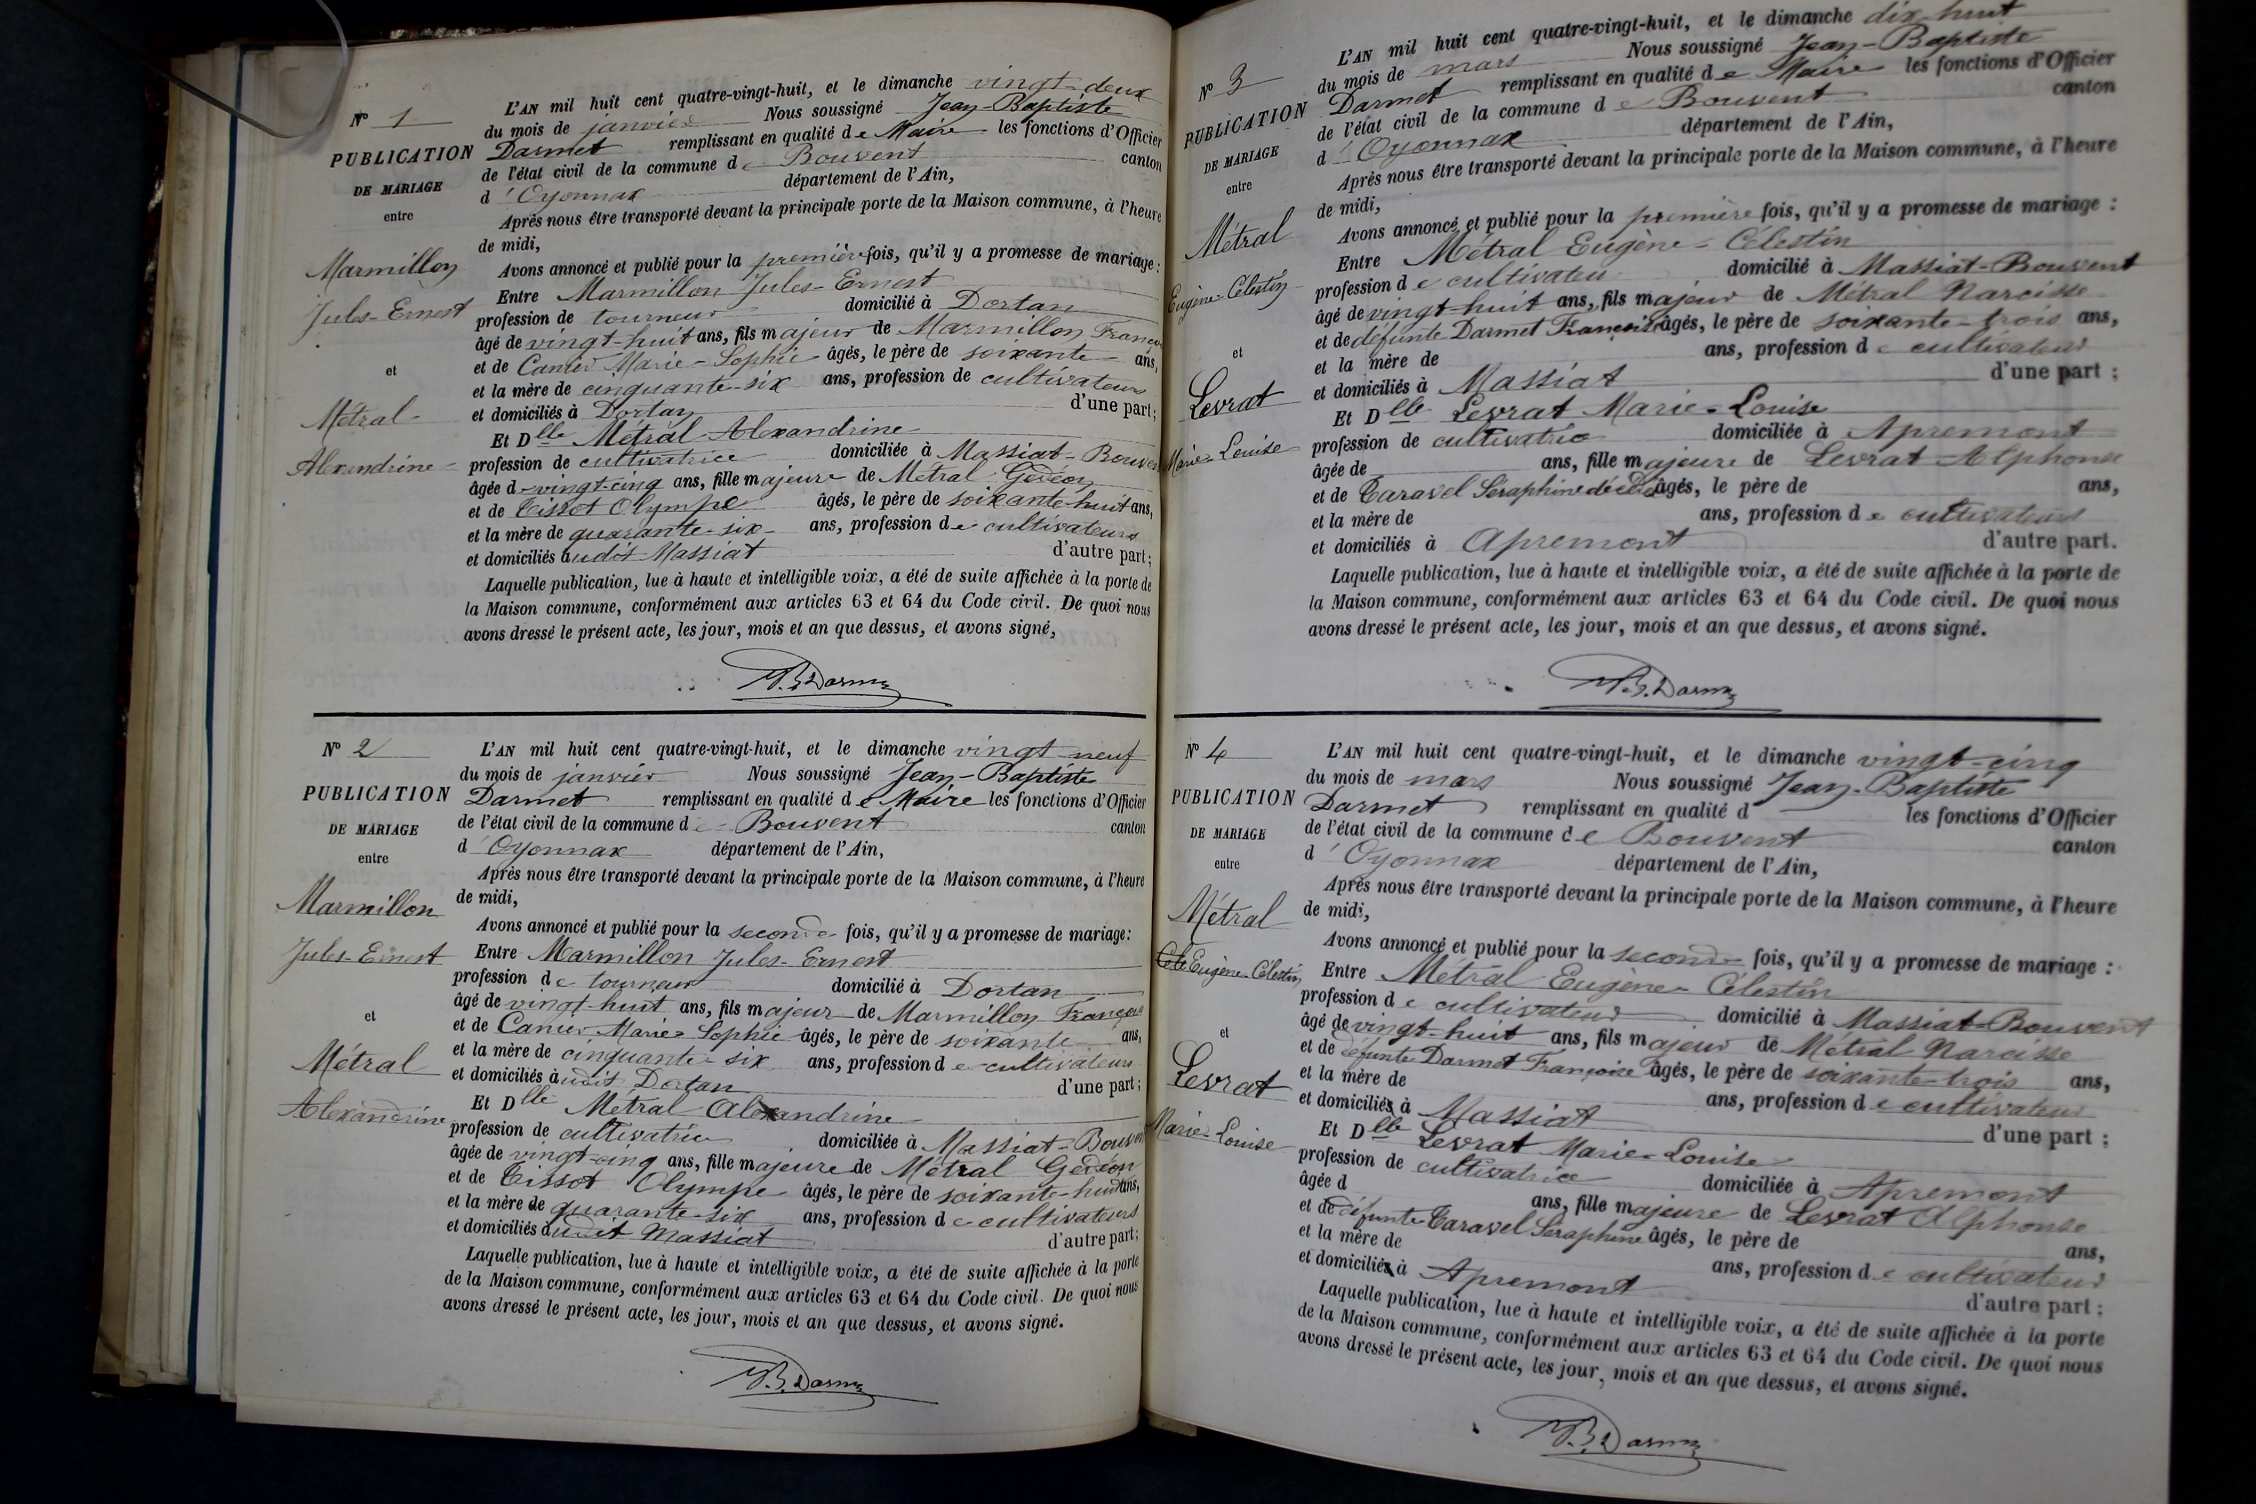 N° 1
PUBLICATION
DE MARIAGE
entre
Marmillon
Jules-Ernest
et
Métral
Alexandrine
L'AN mil huit cent quatre-vingt-huit, et le dimanche vingt-deux
du mois de janvier Nous soussigné Jean-Baptiste
Darmet remplissant en qualité de Maire les fonctions d'Officier
de l'état civil de la commune de Bouvent canton
d'Oyonnax département de l'Ain,
Après nous être transporté devant la principale porte de la Maison commune, à l'heure
de midi,
Avons annoncé et publié pour la première fois, qu'il y a promesse de mariage :
Entre Marmillon Jules-Ernest
profession de tourneur domicilié à Dortan
âgé de vingt-huit ans, fils majeur de Marmillon Franço
et de Canier Marie-Sophie âgés, le père de soixante ans,
et la mère de cinquante-six ans, profession de cultivateurs
et domiciliés à Dortan d'une part ;
Et Dlle Métral Alexandrine
profession de cultivatrice domiciliée à Massiat-Bouven
âgée de vingt-cinq ans, fille majeure de Métral Gédéon
et de Tissot Olympe âgés, le père de soixante-huit ans,
et la mère de quarante-six ans, profession de cultivateurs
et domiciliés audit Massiat d'autre part ;
Laquelle publication, lue à haute et intelligible voix, a été de suite affichée à la porte de
la Maison commune, conformément aux articles 63 et 64 du Code civil. De quoi nous
avons dressé le présent acte, les jour, mois et an que dessus, et avons signé,
J.B. Darmet
N° 2
PUBLICATION
DE MARIAGE
entre
Marmillon
Jules-Ernest
et
Métral
Alexandrine
L'AN mil huit cent quatre-vingt-huit, et le dimanche vingt-neuf
du mois de janvier Nous soussigné Jean-Baptiste
Darmet remplissant en qualité de Maire les fonctions d'Officier
de l'état civil de la commune de Bouvent canton
d'Oyonnax département de l'Ain,
Après nous être transporté devant la principale porte de la Maison commune, à l'heure
de midi,
Avons annoncé et publié pour la seconde fois, qu'il y a promesse de mariage :
Entre Marmillon Jules-Ernest
profession de tourneur domicilié à Dortan
âgé de vingt-huit ans, fils majeur de Marmillon François
et de Canier Marie-Sophie âgés, le père de soixante ans,
et la mère de cinquante-six ans, profession de cultivateurs
et domiciliés audit Dortan d'une part ;
Et Dlle Métral Alexandrine
profession de cultivatrice domiciliée à Massiat-Bouven
âgée de vingt-cinq ans, fille majeure de Métral Gédéon
et de Tissot Olympe âgés, le père de soixante-huit ans,
et la mère de quarante-six ans, profession de cultivateurs
et domiciliés audit Massiat d'autre part ;
Laquelle publication, lue à haute et intelligible voix, a été de suite affichée à la porte
de la Maison commune, conformément aux articles 63 et 64 du Code civil. De quoi nous
avons dressé le présent acte, les jour, mois et an que dessus, et avons signé.
J.B. Darmet
N° 3
PUBLICATION
DE MARIAGE
entre
Métral
Eugène-Célestin
et
Levrat
Marie-Louise
L'AN mil huit cent quatre-vingt-huit, et le dimanche dix-huit
du mois de mars Nous soussigné Jean-Baptiste
Darmet remplissant en qualité de Maire les fonctions d'Officier
de l'état civil de la commune de Bouvent canton
d'Oyonnax département de l'Ain,
Après nous être transporté devant la principale porte de la Maison commune, à l'heure
de midi,
Avons annoncé et publié pour la première fois, qu'il y a promesse de mariage :
Entre Métral Eugène-Célestin
profession de cultivateur domicilié à Massiat-Bouvent
âgé de vingt-huit ans, fils majeur de Métral Narcisse
et de défunte Darmet Françoise âgés, le père de soixante-trois ans,
et la mère de ans, profession de cultivateur
et domiciliés à Massiat d'une part ;
Et Dlle Levrat Marie-Louise
profession de cultivatrice domiciliée à Apremont
âgée de ans, fille majeure de Levrat Alphonse
et de Caravel Séraphine décédée âgés, le père de ans,
et la mère de ans, profession de cultivateurs
et domiciliés à Apremont d'autre part.
Laquelle publication, lue à haute et intelligible voix, a été de suite affichée à la porte de
la Maison commune, conformément aux articles 63 et 64 du Code civil. De quoi nous
avons dressé le présent acte, les jour, mois et an que dessus, et avons signé.
J.B. Darmet
N° 4
PUBLICATION
DE MARIAGE
entre
Métral
Eugène-Célestin
et
Levrat
Marie-Louise
L'AN mil huit cent quatre-vingt-huit, et le dimanche vingt-cinq
du mois de mars Nous soussigné Jean-Baptiste
Darmet remplissant en qualité d les fonctions d'Officier
de l'état civil de la commune de Bouvent canton
d'Oyonnax département de l'Ain,
Après nous être transporté devant la principale porte de la Maison commune, à l'heure
de midi,
Avons annoncé et publié pour la seconde fois, qu'il y a promesse de mariage :
Entre Métral Eugène-Célestin
profession de cultivateur domicilié à Massiat-Bouvent
âgé de vingt-huit ans, fils majeur de Métral Narcisse
et de défunte Darmet Françoise âgés, le père de soixante-trois ans,
et la mère de ans, profession de cultivateur
et domiciliés à Massiat d'une part ;
Et Dlle Levrat Marie-Louise
profession de cultivatrice domiciliée à Apremont
âgée d ans, fille majeure de Levrat Alphonse
et de défunte Caravel Séraphine âgés, le père de ans,
et la mère de ans, profession de cultivateur
et domiciliés à Apremont d'autre part ;
Laquelle publication, lue à haute et intelligible voix, a été de suite affichée à la porte
de la Maison commune, conformément aux articles 63 et 64 du Code civil. De quoi nous
avons dressé le présent acte, les jour, mois et an que dessus, et avons signé.
J.B. Darmet